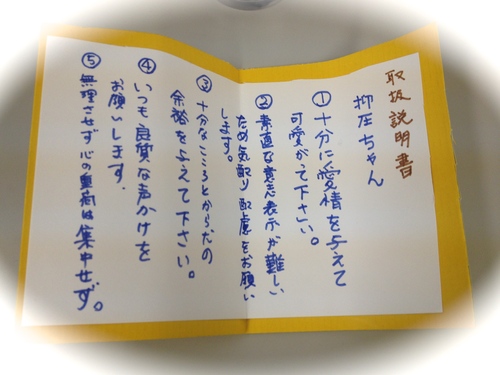 取扱説明書
抑圧ちゃん
①十分に愛情を与えて
可愛がって下さい。
②素直な意志表示が難しい
ため気配り配慮をお願い
します。
③十分なこころとからだの
余裕を与えて下さい。
④いつも良質な声かけを
お願いします。
⑤無理させず心の重荷は集中せず。